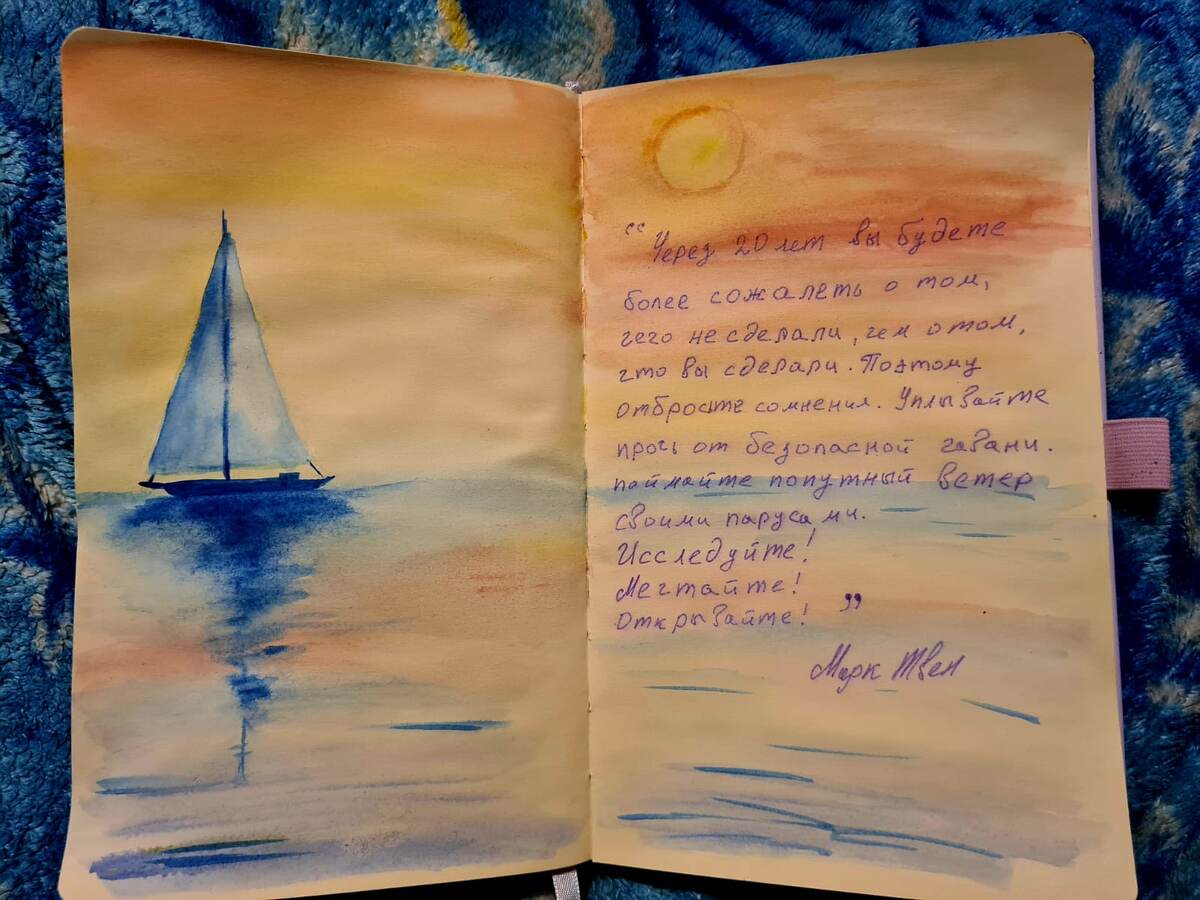 “Через 20 лет вы будете
более сожалеть о том,
чего не сделали, чем о том,
что вы сделали. Поэтому
отбросьте сомнения. Уплывайте
прочь от безопасной гавани.
поймайте попутный ветер
своими парусами.
Исследуйте!
Мечтайте!
Открывайте! ”
Марк Твен